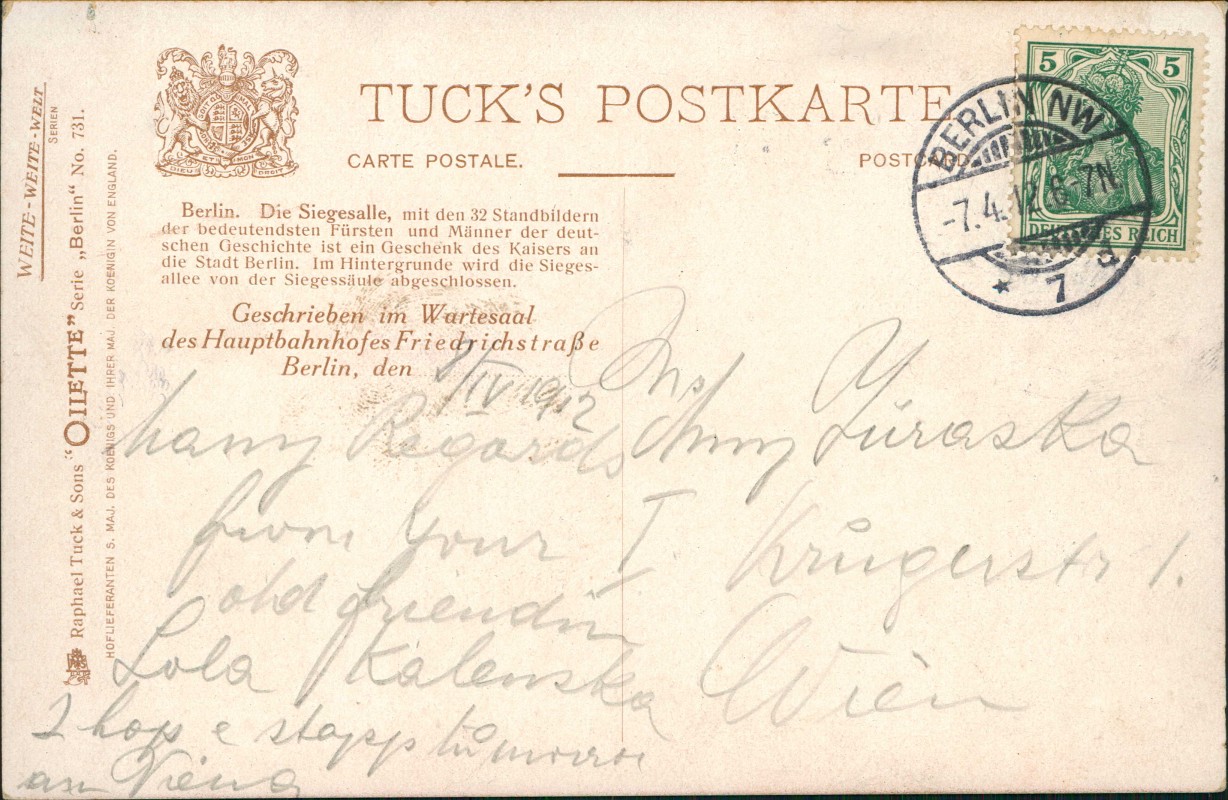 WEITE-WEITE-WELT
SERIEN
Raphael Tuck & Sons "OILETTE" Serie „Berlin" No. 731.
HOFLIEFERANTEN S. MAJ. DES KOENIGS UND IHRER MAJ. DER KOENIGIN VON ENGLAND.
DIEU ET MON DROIT
TUCK'S POSTKARTE
CARTE POSTALE.
POSTCARD
5 5
DEUTSCHES REICH
BERLIN NW
-7.4.12.6-7N.
* 7 d
Berlin. Die Siegesalle, mit den 32 Standbildern
der bedeutendsten Fürsten und Männer der deut-
schen Geschichte ist ein Geschenk des Kaisers an
die Stadt Berlin. Im Hintergrunde wird die Sieges-
allee von der Siegessäule abgeschlossen.
Geschrieben im Wartesaal
des Hauptbahnhofes Friedrichstraße
Berlin, den 7/IV 1912
Many Regards
from Your
old friendin
Lola Kalenska
I hope stopp tu morroe
an Viena
Anny Jùraska
I Krùgerstr 1.
Wien